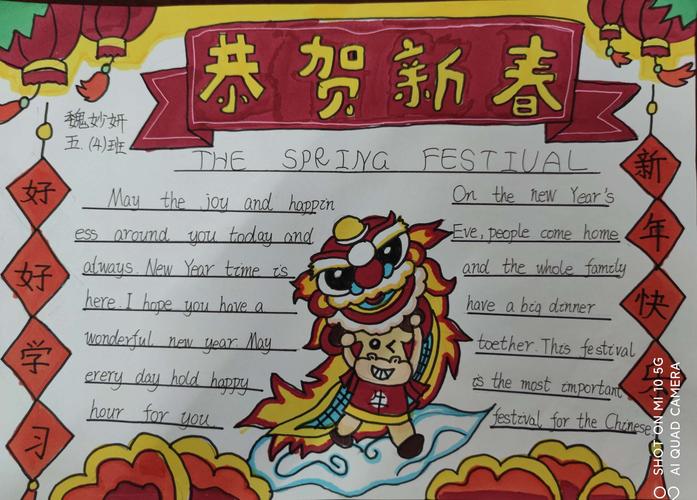 恭贺新春
魏妙妍
五.(4)班
THE SPRING FESTIVAL
May the joy and happin
ess around you today and
always. New Year time is
here. I hope you have a
wonderful new year May
erery day hold happy
hour for you
On the new Year's
Eve, people come home
and the whole family
have a big dinner
toether. This festival
is the most important
festival for the Chinese
好
好
学
习
新
年
快
SHOT ON MI 10 5G
AI QUAD CAMERA